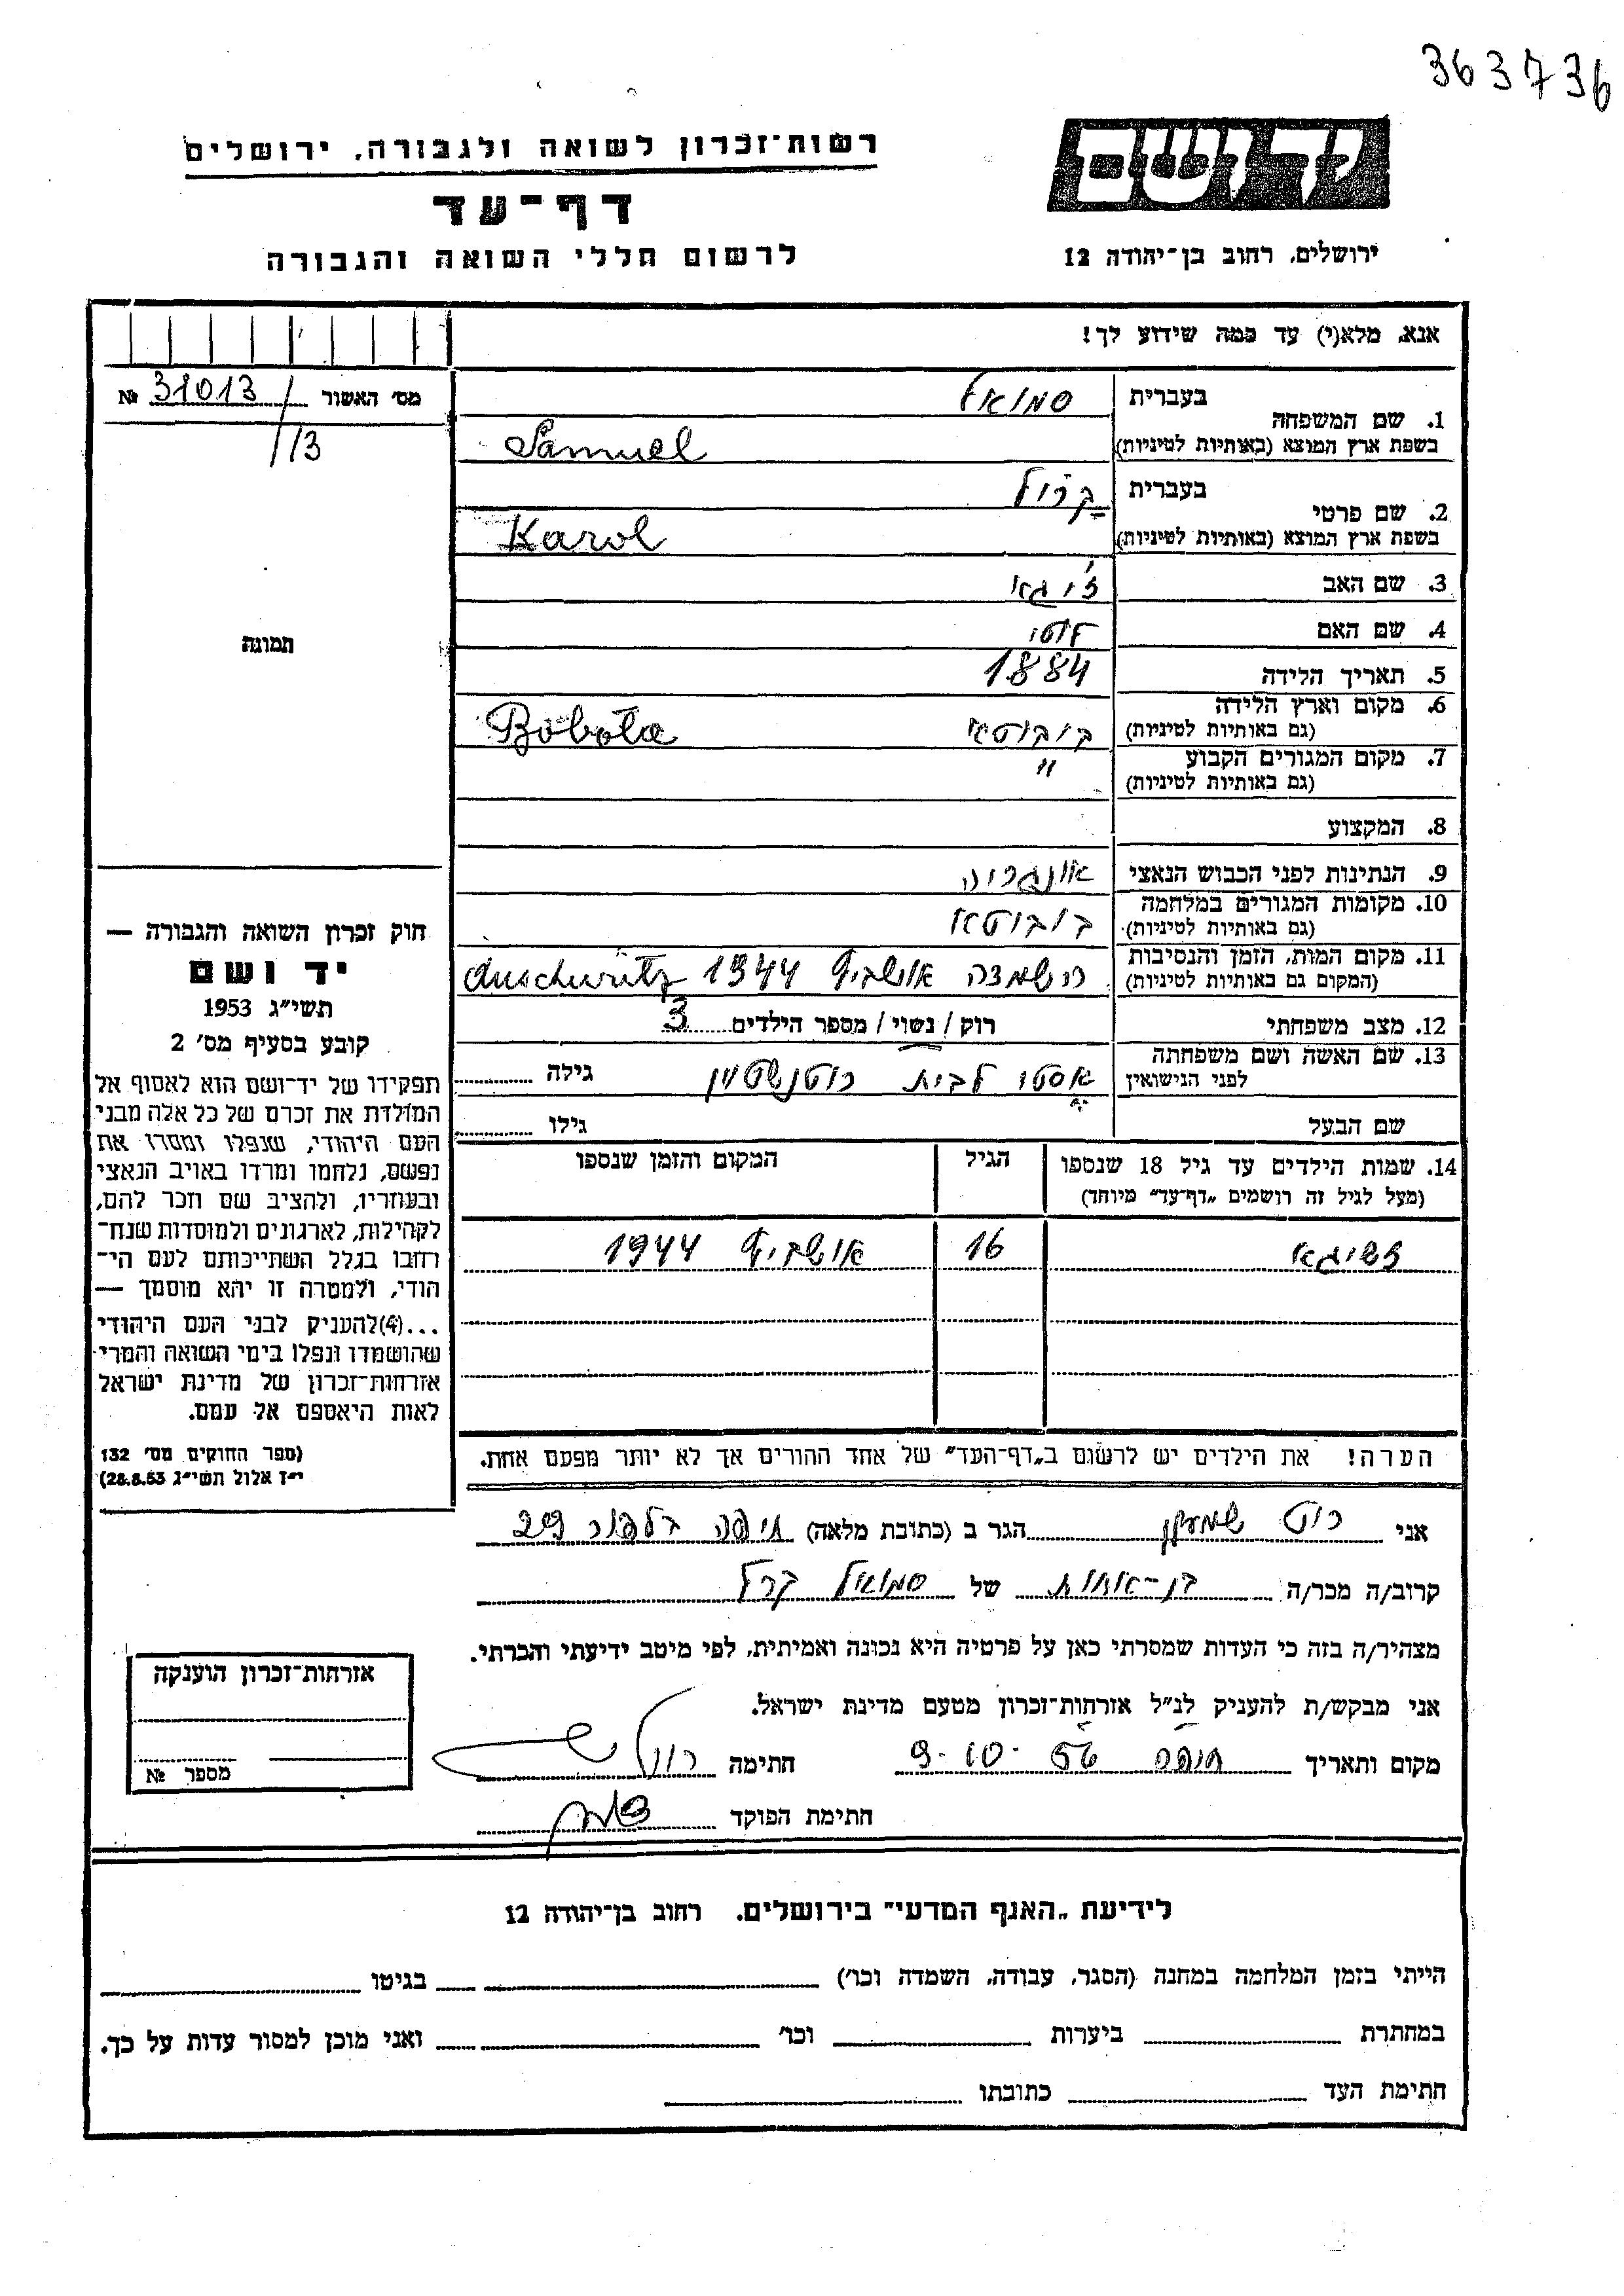 363736
יד ושם
ירושלים, רחוב בן־יהודה 12
רשות־זכרון לשואה ולגבורה, ירושלים
דף־עד
לרשום חללי השואה והגבורה
אנא, מלא(י) עד כמה שידוע לך!
מס' האשור 31013 №
/13
תמונה
בעברית סמואל
1. שם המשפחה
בשפת ארץ המוצא (באותיות לטיניות) Samuel
בעברית קרול
2. שם פרטי
בשפת ארץ המוצא (באותיות לטיניות) Karol
3. שם האב
4. שם האם
5. תאריך הלידה 1884
6. מקום וארץ הלידה בובוטא Bobota
(גם באותיות לטיניות)
7. מקום המגורים הקבוע "
(גם באותיות לטיניות)
8. המקצוע
9. הנתינות לפני הכבוש הנאצי אונגריה
10. מקומות המגורים במלחמה בובוטא
(גם באותיות לטיניות)
11. מקום המות, הזמן והנסיבות השמדה אושביץ 1944 Auschwitz
(המקום גם באותיות לטיניות)
12. מצב משפחתי רוק / נשוי / מספר הילדים 3
13. שם האשה ושם משפחתה לבית רוטנשטיין גילה
לפני הנישואין
שם הבעל גילו
14. שמות הילדים עד גיל 18 שנספו הגיל המקום והזמן שנספו
(מעל לגיל זה רושמים „דף־עד" מיוחד)
16 אושביץ 1944
הערה! את הילדים יש לרשום ב„דף־העד" של אחד ההורים אך לא יותר מפעם אחת.
חוק זכרון השואה והגבורה —
יד ושם
תשי"ג 1953
קובע בסעיף מס' 2
תפקידו של יד־ושם הוא לאסוף אל
המולדת את זכרם של כל אלה מבני
העם היהודי, שנפלו ומסרו את
נפשם, נלחמו ומרדו באויב הנאצי
ובעוזריו, ולהציב שם וזכר להם,
לקהילות, לארגונים ולמוסדות שנח־
רבו בגלל השתייכותם לעם הי־
הודי, ולמטרה זו יהא מוסמך —
...(4)להעניק לבני העם היהודי
שהושמדו ונפלו בימי השואה והמרי
אזרחות־זכרון של מדינת ישראל
לאות היאספם אל עמם.
(ספר החוקים מס' 132
י"ז אלול תשי"ג 28.8.53)
אני רוט שמעון הגר ב (כתובת מלאה) חיפה בלפור 29
קרוב/ה מכר/ה בן-אחות של סמואל קרל
מצהיר/ה בזה כי העדות שמסרתי כאן על פרטיה היא נכונה ואמיתית, לפי מיטב ידיעתי והכרתי.
אני מבקש/ת להעניק לנ"ל אזרחות־זכרון מטעם מדינת ישראל.
מקום ותאריך חיפה 9-10-56 חתימה
חתימת הפוקד
אזרחות־זכרון הוענקה
מספר №
לידיעת „האגף המדעי" בירושלים. רחוב בן־יהודה 12
הייתי בזמן המלחמה במחנה (הסגר, עבודה, השמדה וכו') בגיטו
במחתרת ביערות וכו' ואני מוכן למסור עדות על כך.
חתימת העד כתובתו